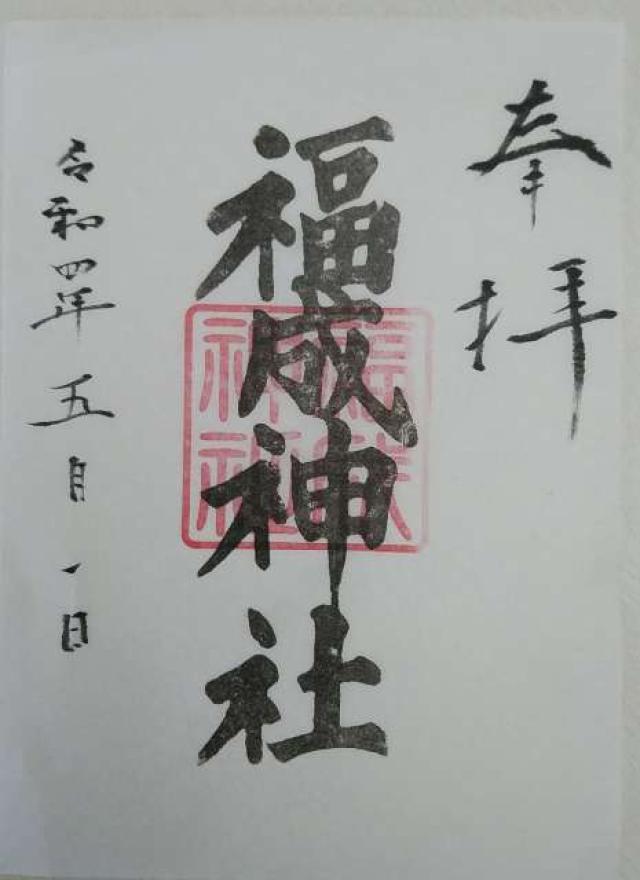 奉拝
福成神社
令和四年五月一日
福成
神社